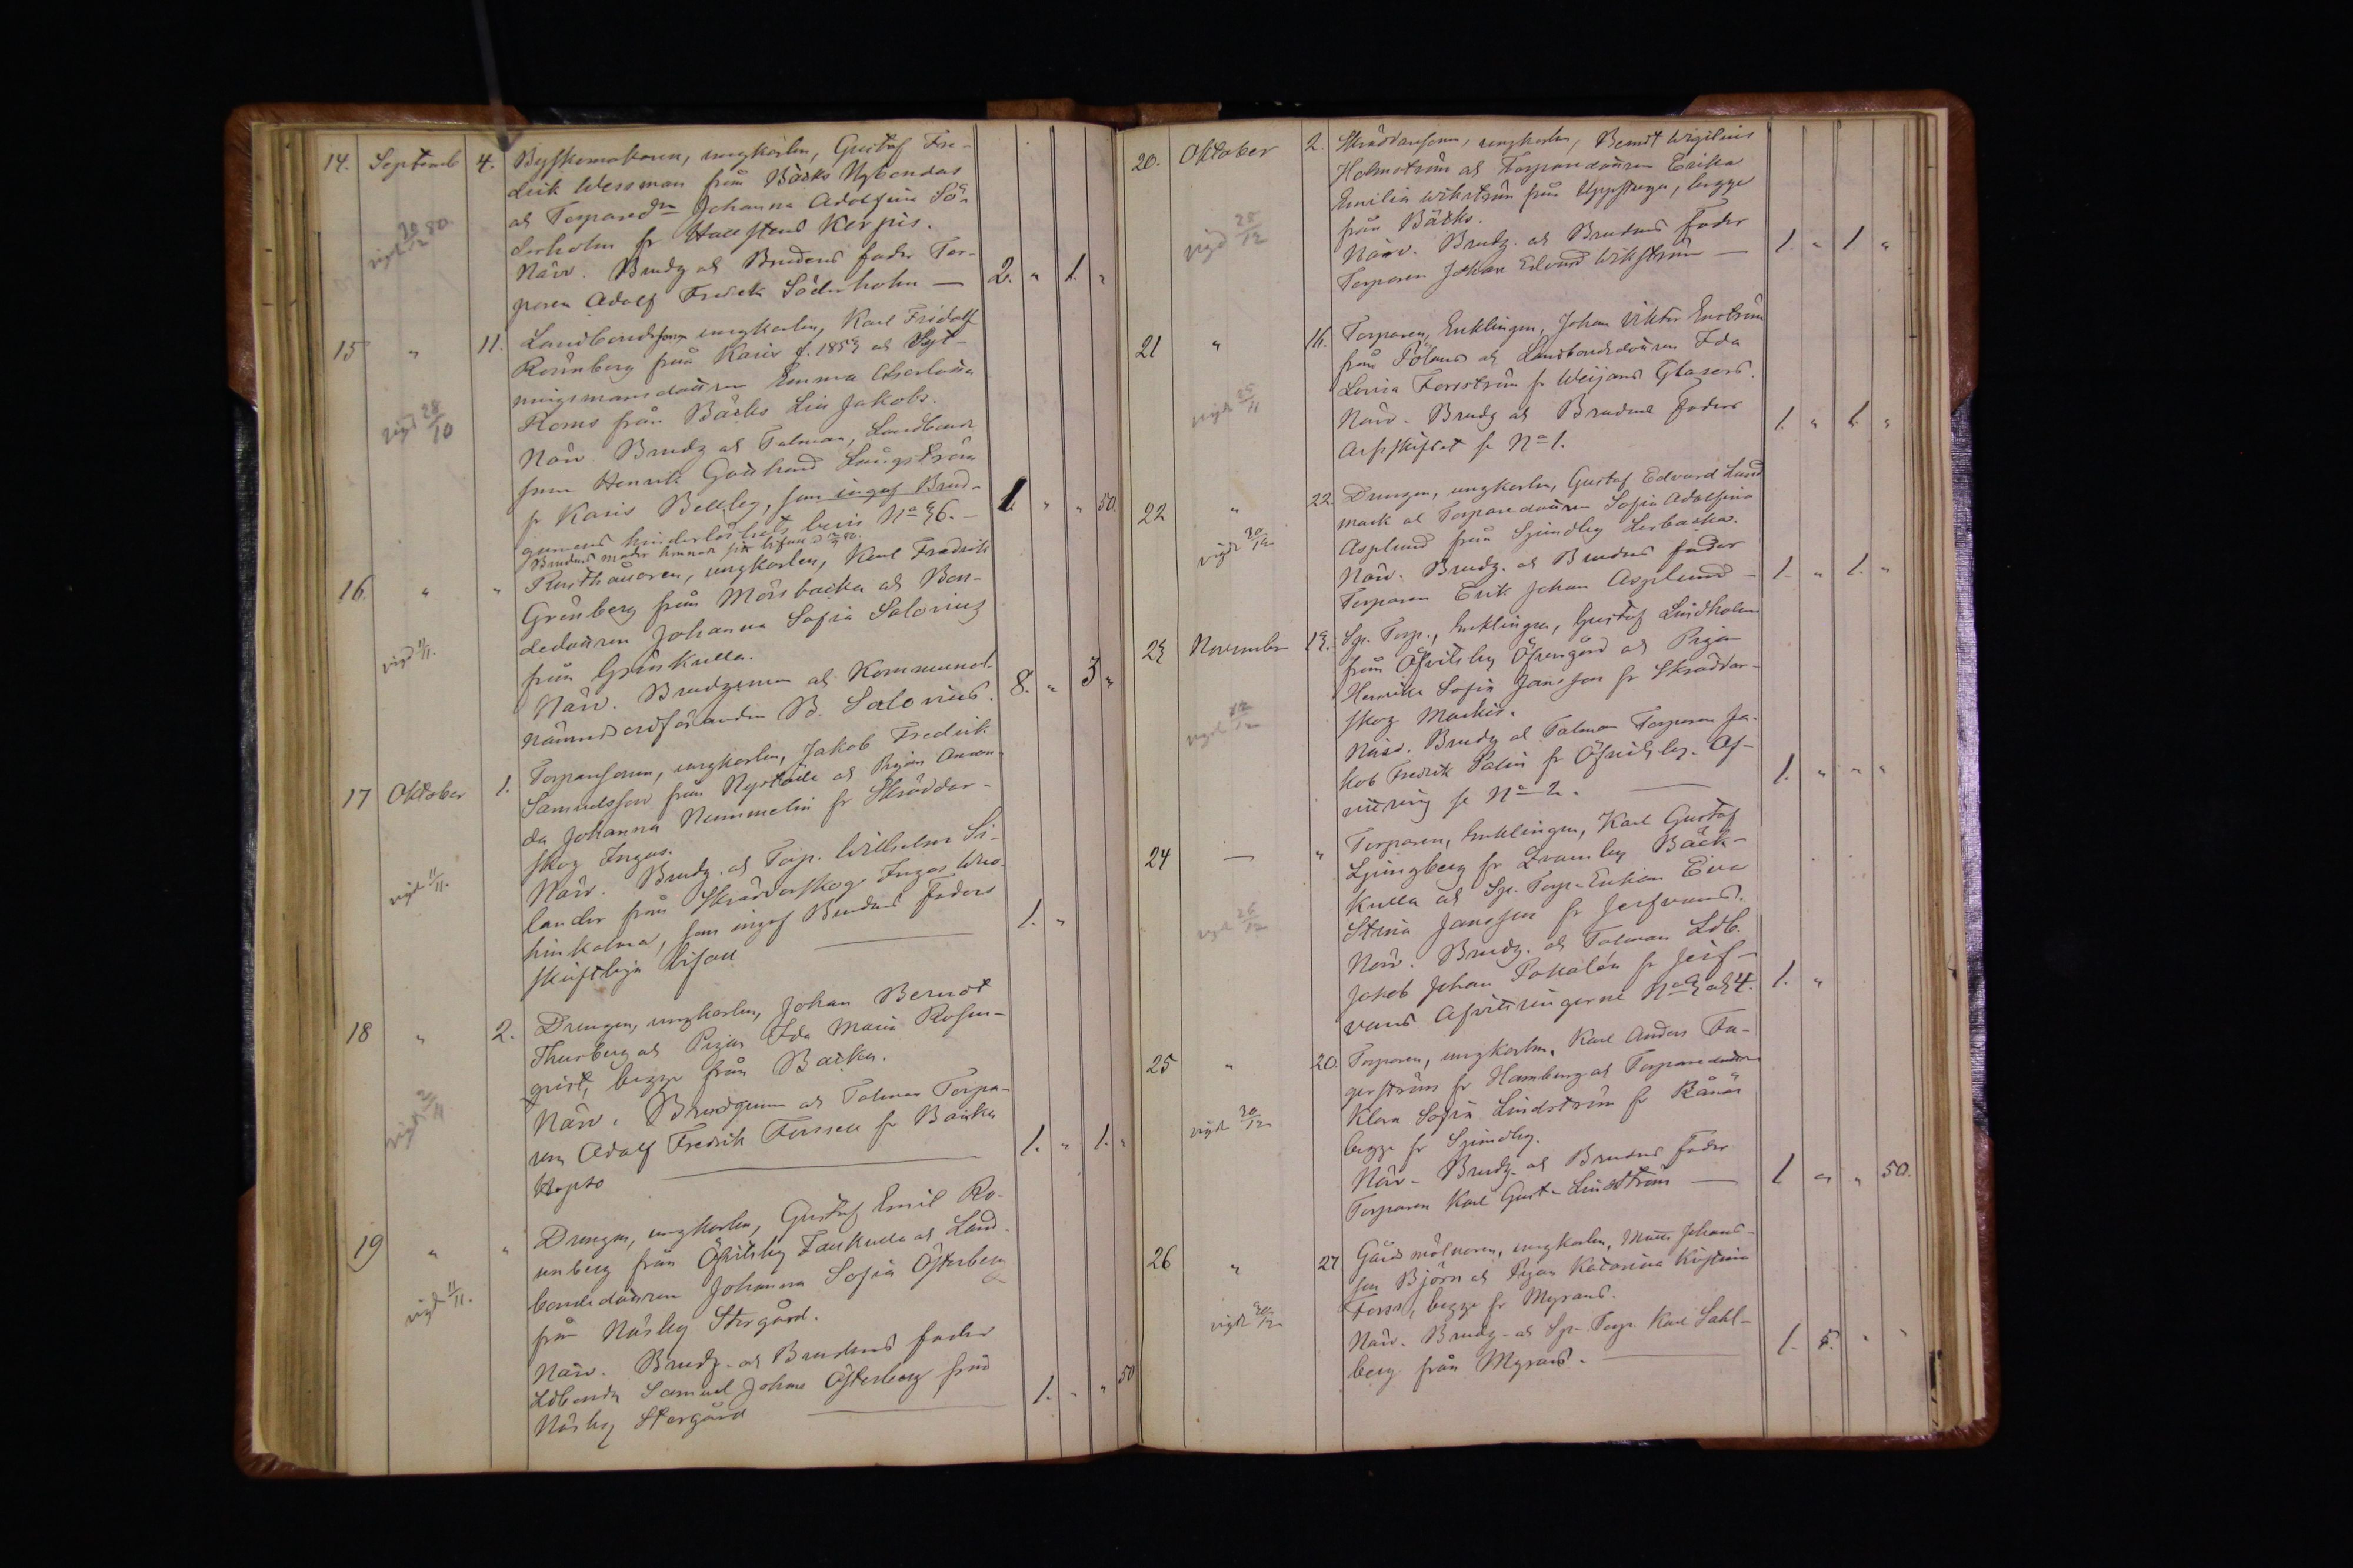 14. Septemb 4. Byskomakaren, ungkarlen, Gustaf Fre-
drik Wessman från Bäcks Nybondas
och Torparedrn Johanna Adolfina Sö-
vigd 30/12 80.
derholm fr
Närv. Brudg och Brudens fader Tor-
paren Adolf Fredrik Söderholm — 2. " 1. "
15 " 11. Landbondesonen ungkarlen, Karl Fridolf
Rosenberg från Karis f. 1853 och
ningsmansdottren Emma Charlotta
Roms från Bäcks Lill Jakobs.
vigd 28/10
Närv. Brudg och Talman, Landbonde
sonen Henrik Gotthard Långström
fr Karis Bälleby, som ingaf Brud- 1. " " 50.
gummens hinderlöshets bevis No 36. —
Brudens moder
16. " " Rusthållaren, ungkarlen, Karl Fredrik
Grönberg från Mörsbacka och Bon-
dedottren Johanna Sofia Salonius
från Gräskulla.
vigd 1/11.
Närv. Brudgummen och Kommunal-
nämndsordföranden B. Salonius. 8. " 3 "
17 Oktober 1. Torparsonen, ungkarlen, Jakob Fredrik
Samuelsson från och Pigan Aman-
da Johanna Nummelin fr Skräddar-
skog Ingas.
Närv. Brudg. och Torp. Wilhelm Si-
vigd 11/11.
lander från Skräddarskog Ingas
som ingaf Brudens faders 1. "
skriftliga bifall
18 " 2. Drengen, ungkarlen, Johan Berndt
Thurberg och Pigan Ida Maria Rosen-
qvist, begge från Backa.
vigd 2/11
Närv. Brudgum och Talman Torpa-
ren Adolf Fredrik Forssell fr Backa 1. " 1. "
19 " " Drengen, ungkarlen, Gustaf Emil Ro-
senberg från Öfvitsby och Land-
bondedottren Johanna Sofia Österberg
från Näsby Storgård.
vigd 11/11.
Närv. Brudg. och Brudens fader
Ldbonden Samuel Johan Österberg från 1. " " 50
Näsby Storgård
20. Oktober 2. Skräddarsonen, ungkarlen, Berndt Wigilius
Holmström och Torparedottren Erika
Emilia Wikström från begge
från Bäcks.
vigd 28/12
Närv. Brudg. och Brudens fader
Torparen Johan Edvard Wikström — 1. " 1. "
21 " 16. Torparen, Enklingen, Johan Viktor Enström
från och Landbondedottren Ida
Lovisa Forsström fr Weijans Glasers.
vigd 25/11
Närv. Brudg och Brudens fader
Arfskiftet se No 1. 1. " 1. "
22 " 22. Drengen, ungkarlen, Gustaf Edvard Land
mark och Torparedottren Sofia Adolfina
Asplund från Spjundby
vigd 30/12
Närv. Brudg. och Brudens fader
Torparen Erik Johan Asplund — 1. " 1. "
23 November 13. Sp. Torp., Enklingen, Gustaf Lindholm
från Öfvitsby Öfvergård och Pigan
Henrika Sofia Jansson fr Skräddar-
skog Markis.
vigd 12/12
Närv. Brudg och Talman Torparen Ja-
kob Fredrik Palin fr Öfvitsby. Af-
vittring se No 2. — 1. " " "
24 — " Torparen, Enklingen, Karl Gustaf
Ljungberg fr Bäck-
kulla och Sp. Torp. Enkan Eva
Stina Jansson fr Jerfvans.
vigd 26/12
Närv. Brudg. och Talman Ldb.
Jakob Johan fr Jerf-
vans Afvittringarne No 3 och 4. 1. "
25 " 20. Torparen, ungkarlen, Karl Anders Fa-
gerström fr Hamberg och Torparedottren
Klara Sofia Lindström fr Rånäs
begge fr Spjundby.
vigd 30/12
Närv. Brudg. och Brudens fader
Torparen Karl Gust. Lindström — 1 " " 50.
26 " 27 Gårdsmölnaren, ungkarlen, Matts Johans-
son Björn och Pigan Katarina Kristina
Forss, begge fr Myrans.
vigd 30/12
Närv. Brudg. och Sp. Torp. Karl Sahl-
berg från Myrans. — 1.